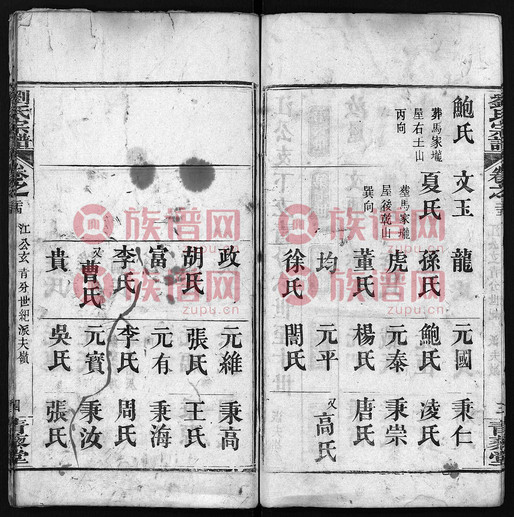 劉氏宗譜
卷之
鮑氏
葬馬家壠
屋右土山
丙向
文玉 龍 元國 秉仁
夏氏 孫氏 鮑氏 凌氏
葬馬家壠
屋後乾山
巽向
虎 元泰 秉崇
董氏 楊氏 唐氏
均 元平 又高氏
徐氏 閻氏
政 元維 秉高
胡氏 張氏 王氏
富 元有 秉海
李氏 李氏 周氏
又曹氏 元寶 秉汝
貴 吳氏 張氏
劉氏宗譜
卷之
江公支 分世紀派夫嶺
四
青藜堂
族谱网
zupu.cn
族谱网
zupu.cn
族谱网
zupu.cn
族谱网
zupu.cn